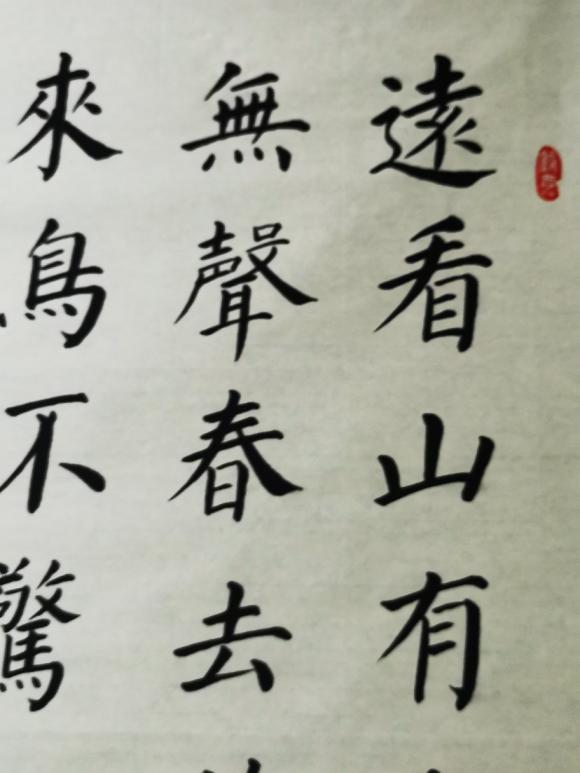 遠看山有
無聲春去
來鳥不驚